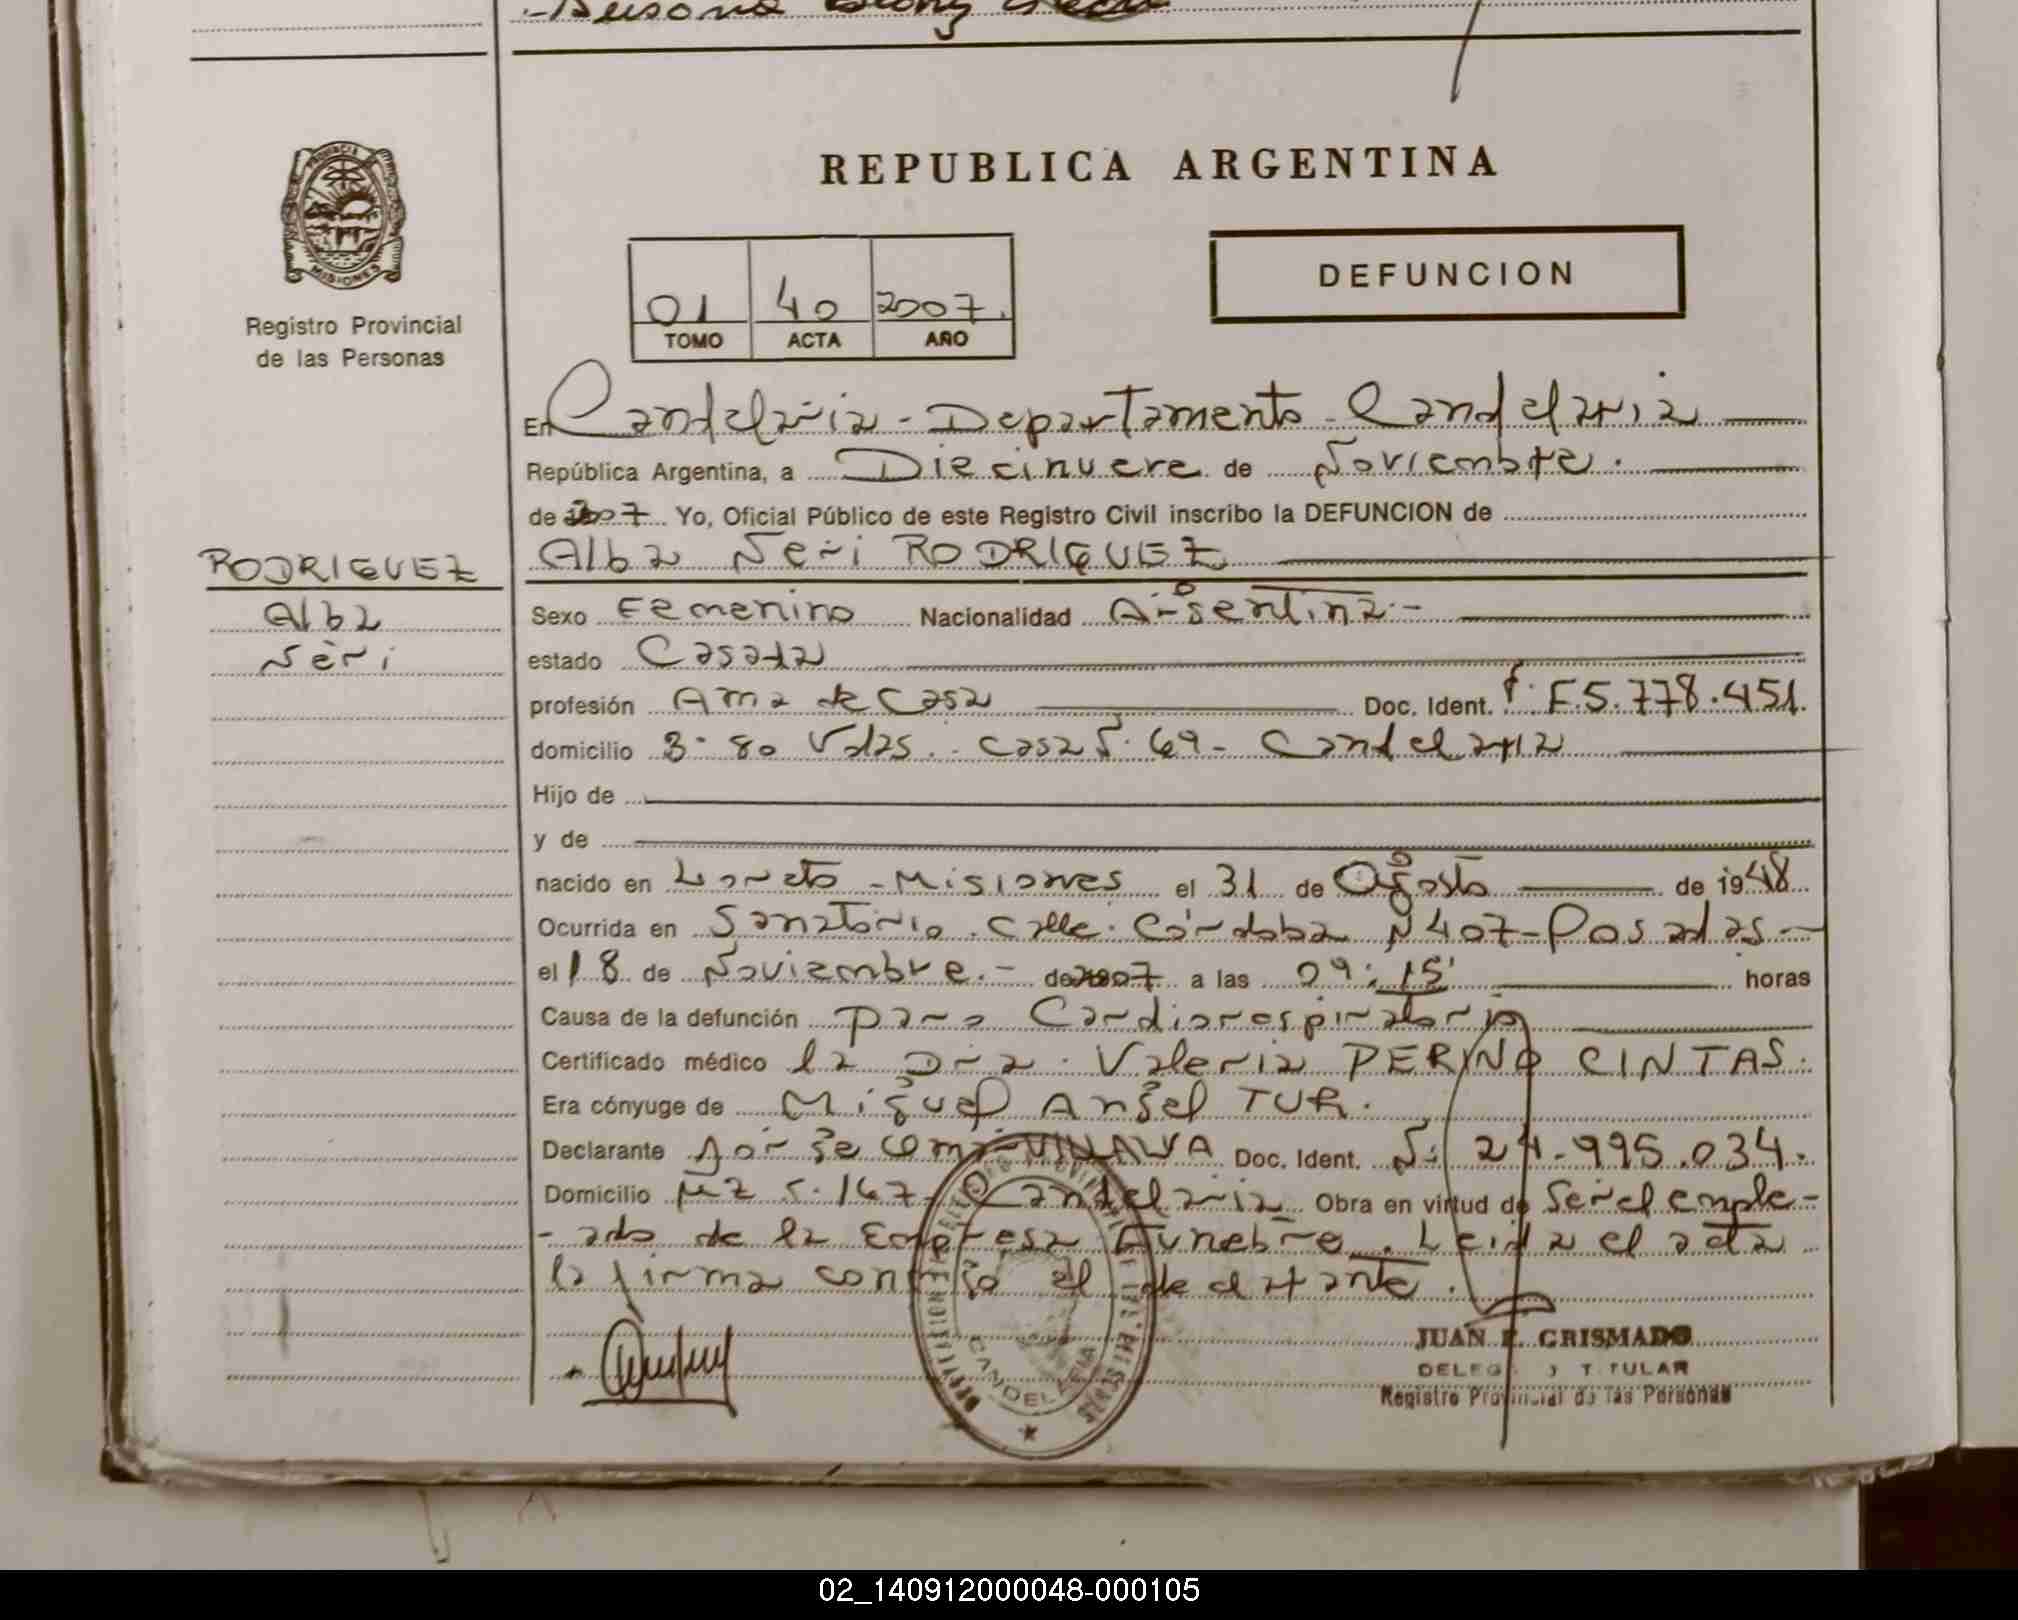 PROVINCIA
MISIONES
Registro Provincial
de las Personas
REPUBLICA ARGENTINA
01 40 2007.
TOMO ACTA AÑO
DEFUNCION
En Candelaria - Departamento - Candelaria
República Argentina, a Diecinueve de Noviembre.
de 2007 Yo, Oficial Público de este Registro Civil inscribo la DEFUNCION de
RODRIGUEZ
Alba
Neri
Alba Neri RODRIGUEZ
Sexo Femenino Nacionalidad Argentina.-
estado Casada
profesión Ama de Casa Doc. Ident. F.5.778.451.
domicilio B° 80 Vdas. Casa N° 69 - Candelaria
Hijo de
y de
nacido en Loreto - Misiones el 31 de Agosto de 1948
Ocurrida en Sanatorio. Calle. Córdoba N 407 - Posadas -
el 18 de Noviembre.- de 2007 a las 09:15' horas
Causa de la defunción paro Cardiorespiratorio
Certificado médico la Dra. Valeria PERINO CINTAS.
Era cónyuge de Miguel Angel TUR.
Declarante Jorge VILLALVA Doc. Ident. N: 24.995.034.
Domicilio Mz N° 167 - Candelaria Obra en virtud de Ser el emple-
-ado de la Empresa Funebre. Leida el acta
la firma conmigo el declarante.
CANDELARIA
JUAN GRISMADO
DELEGADO TITULAR
Registro Provincial de las Personas
02_140912000048-000105